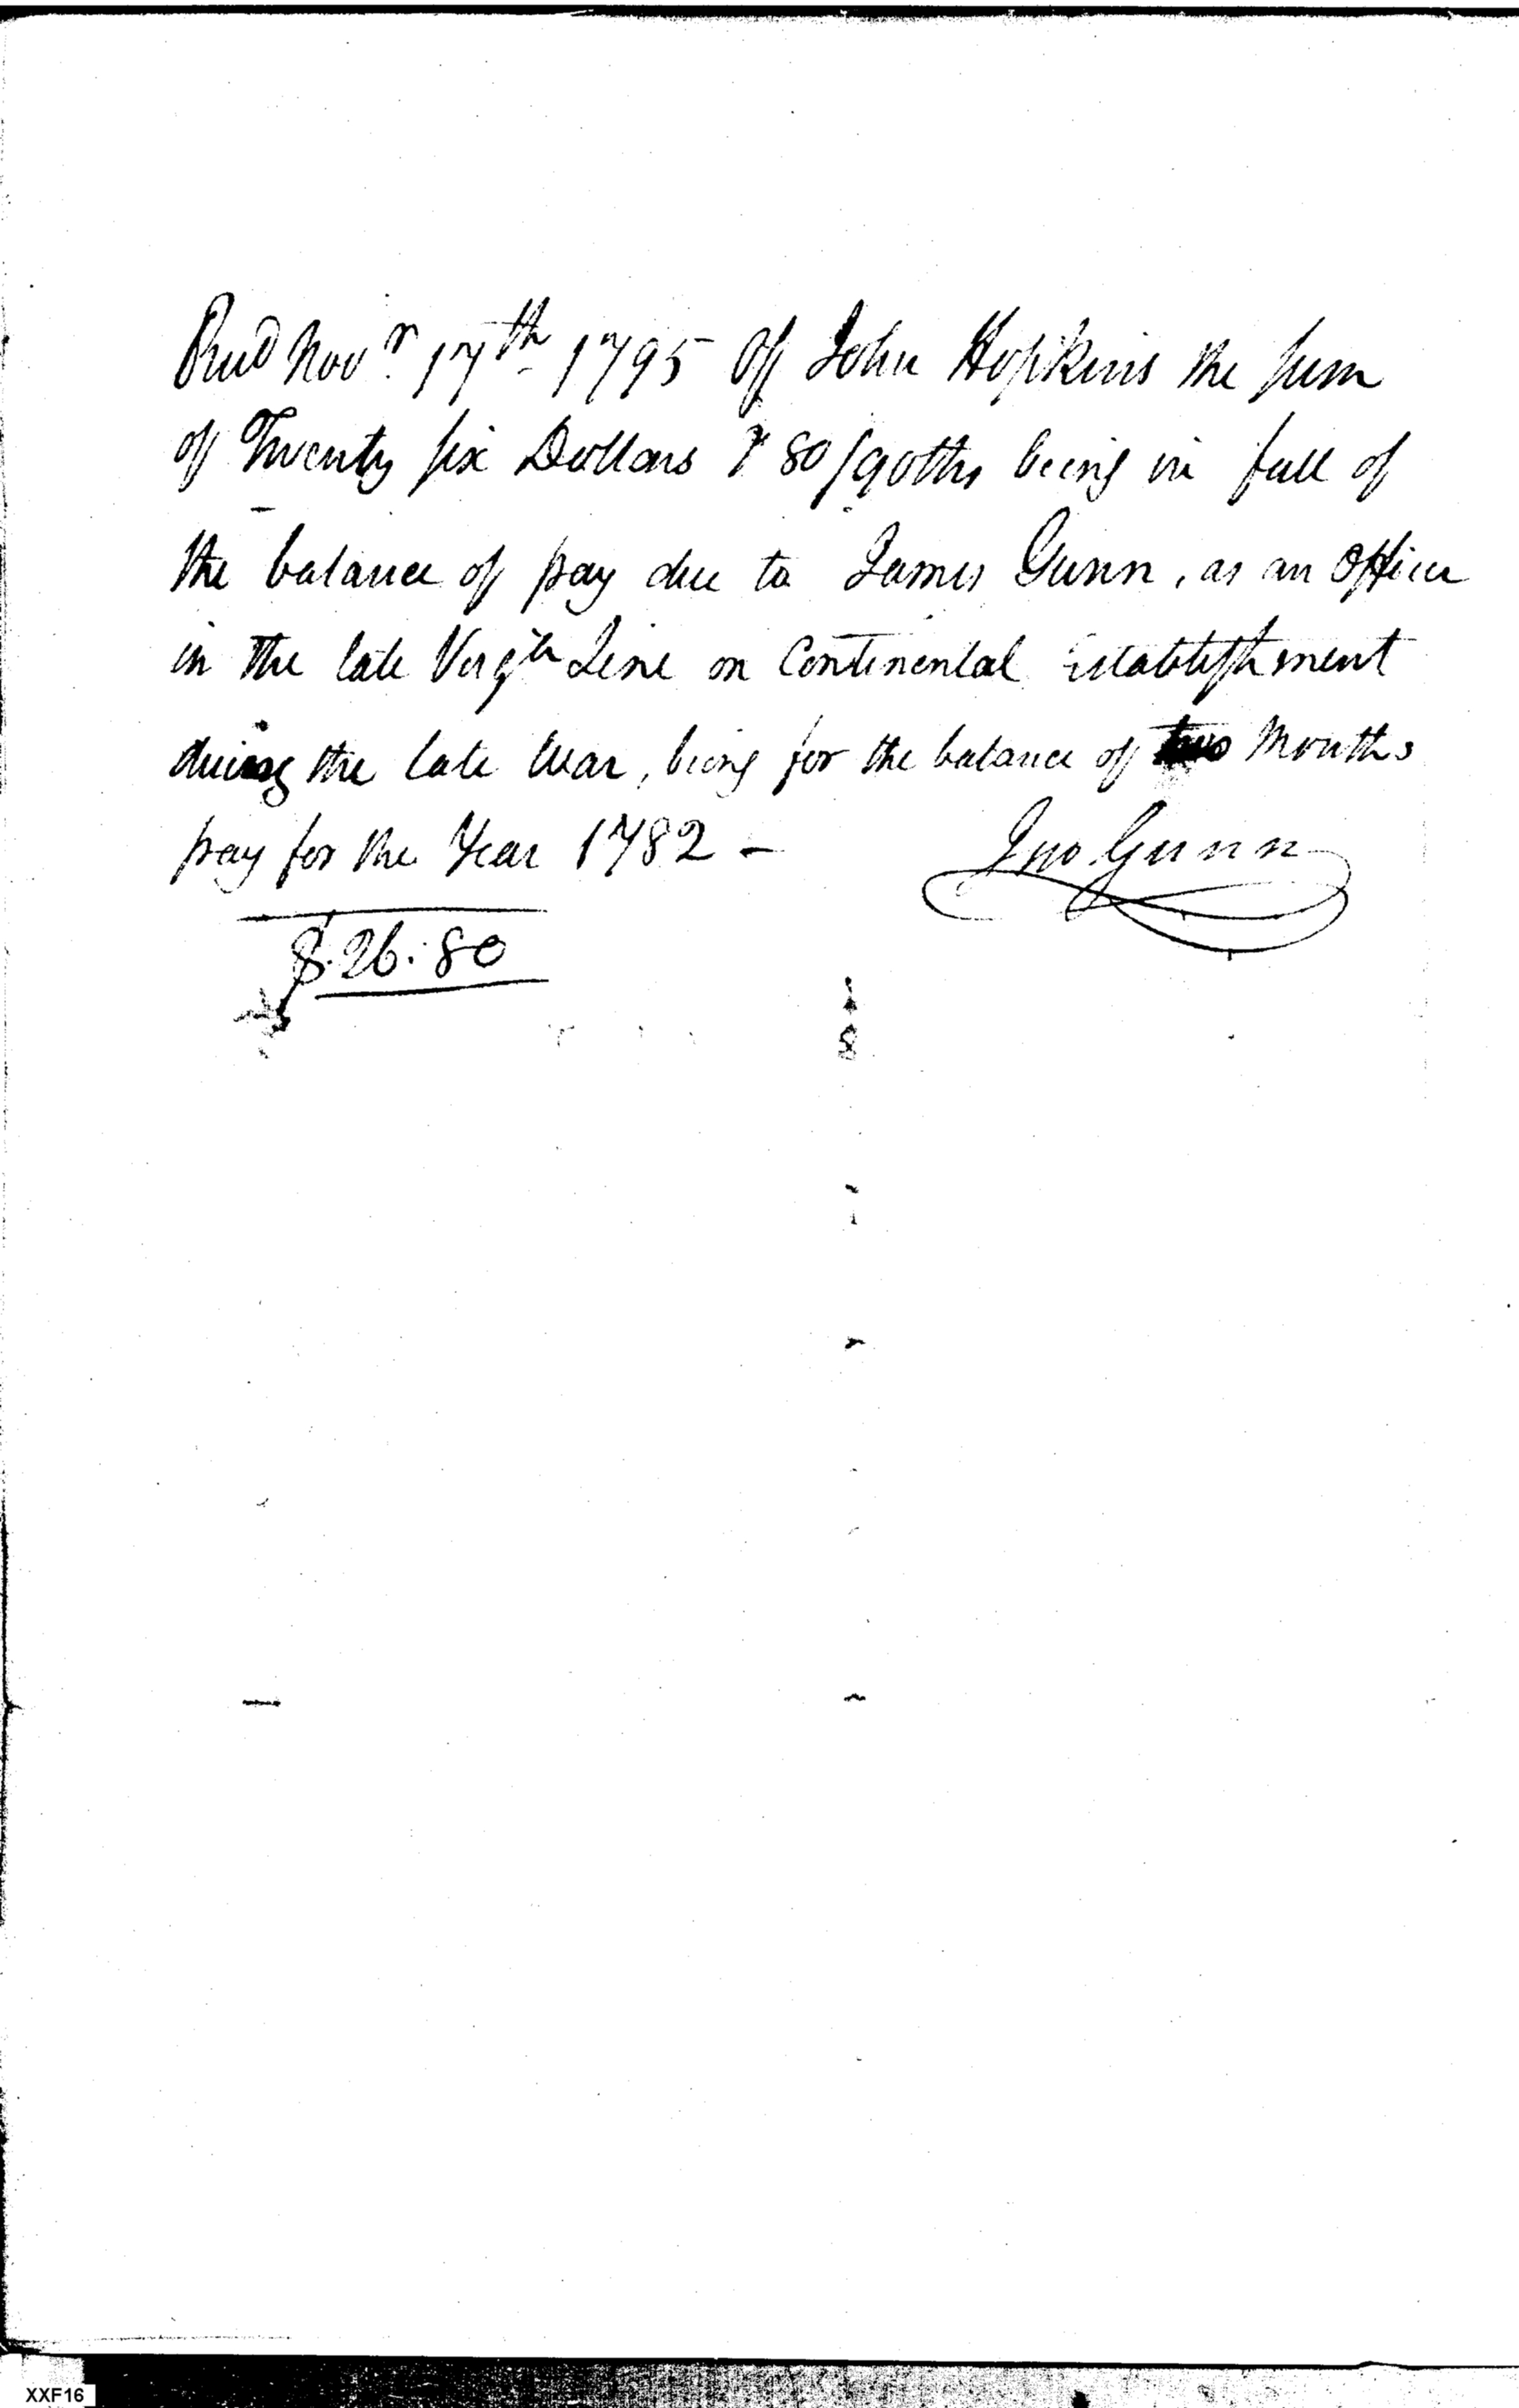 Recd Novr. 17th 1795 Of John Hopkins the sum
of Twenty six Dollars & 80/90ths being in full of
the balance of pay due to James Gunn, as an Officer
in the late Virga Line on Continental Establishment
during the late War, being for the balance of two Months
pay for the Year 1782 –
Jno Gunn
$.26.80
XXF16